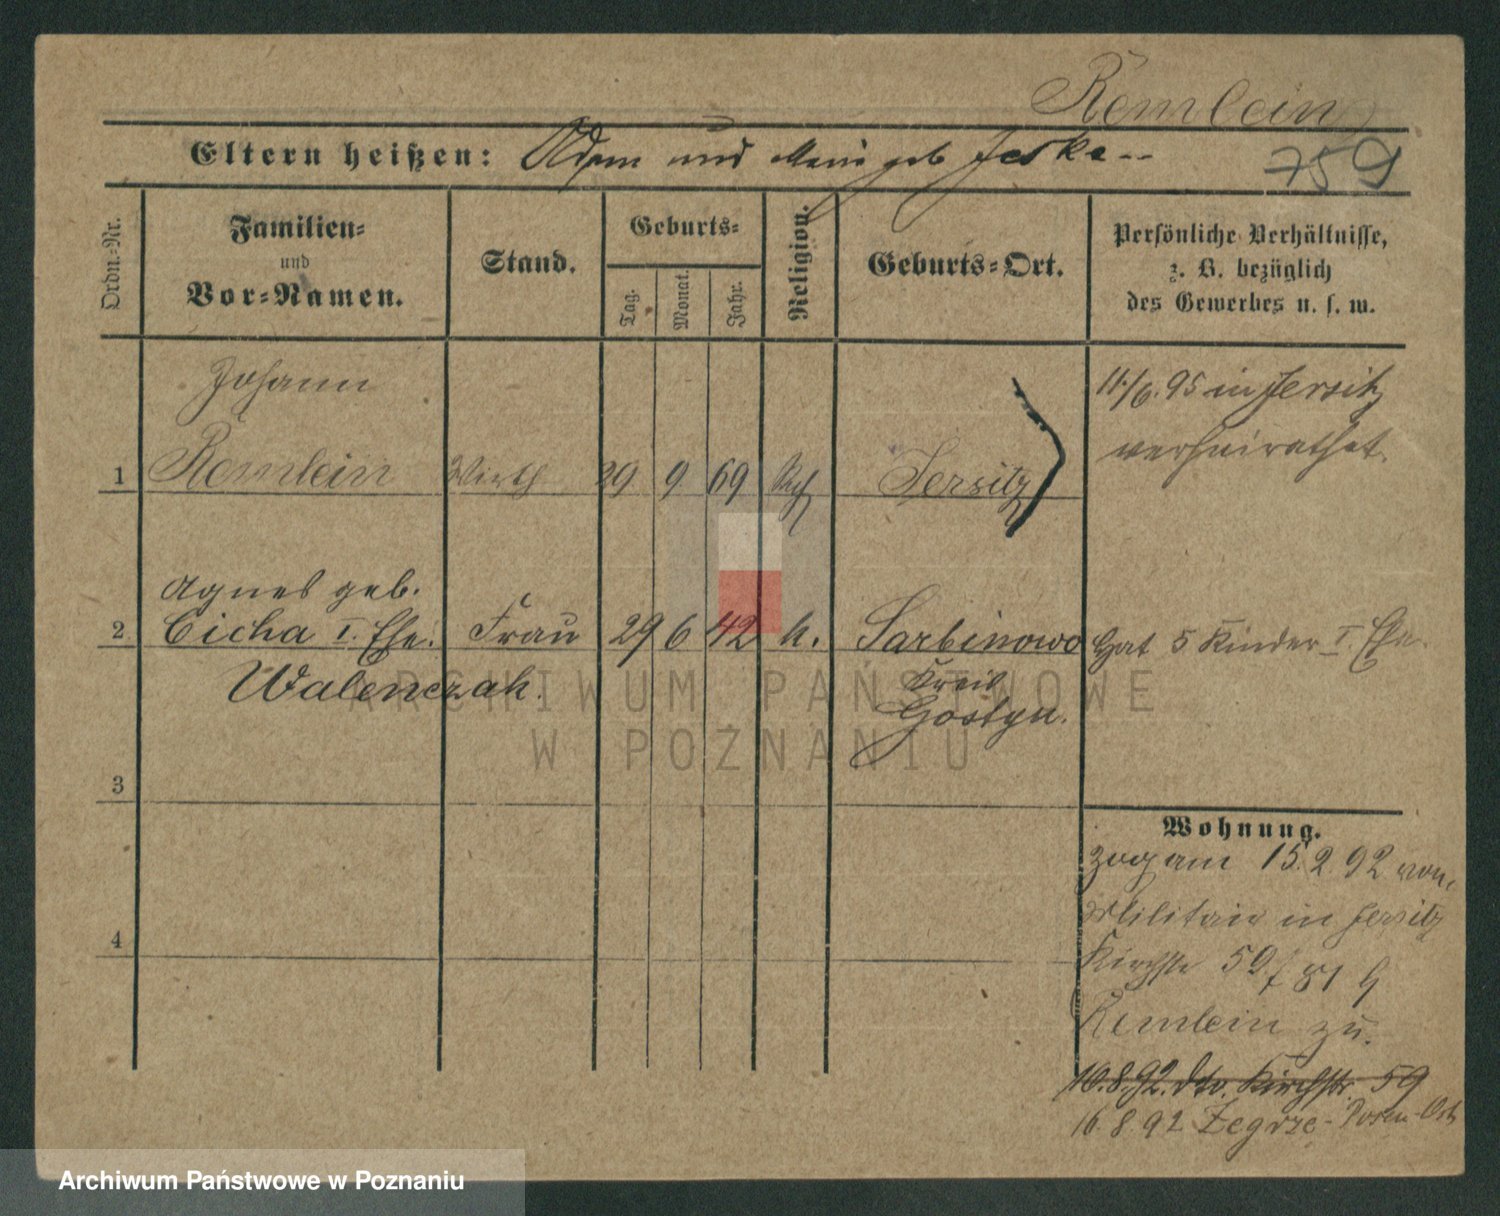 Remlein
Eltern heißen: Adam und Marie geb Jeske
759
Ordn.-Nr.
Familien-
und
Vor-Namen.
Stand.
Geburts-
Tag.
Monat.
Jahr.
Religion.
Geburts-Ort.
Persönliche Verhältnisse,
z. B. bezüglich
des Gewerbes u. s. w.
Johann
1 Remlein Wirth 29 9 69 Jersitz
11./6. 95 in Jersitz
verheirathet.
Agnes geb.
2 Cicha I. Ehe. Frau 29 6 42 k. Sarbinowo Hat 5 Kinder I. Ehe.
Walenczak.
Kreis
Gostyn.
3
4
Wohnung.
zog am 15.2.92 vom
Militair in Jersitz
Kirchstr 59/81 b
Remlein zu.
16.8.92. dto. Kirchstr. 59
16.8.92 Zegrze - Posen-Ost
ARCHIWUM PAŃSTWOWE
W POZNANIU
Archiwum Państwowe w Poznaniu